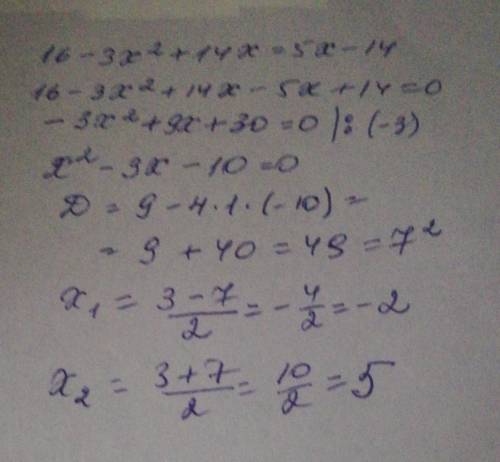 16 - 3x² + 14x = 5x - 14
16 - 3x² + 14x - 5x + 14 = 0
- 3x² + 9x + 30 = 0 | : (-3)
x² - 3x - 10 = 0
D = 9 - 4 · 1 · (-10) =
= 9 + 40 = 49 = 7²
x₁ = (3 - 7)/2 = - 4/2 = - 2
x₂ = (3 + 7)/2 = 10/2 = 5